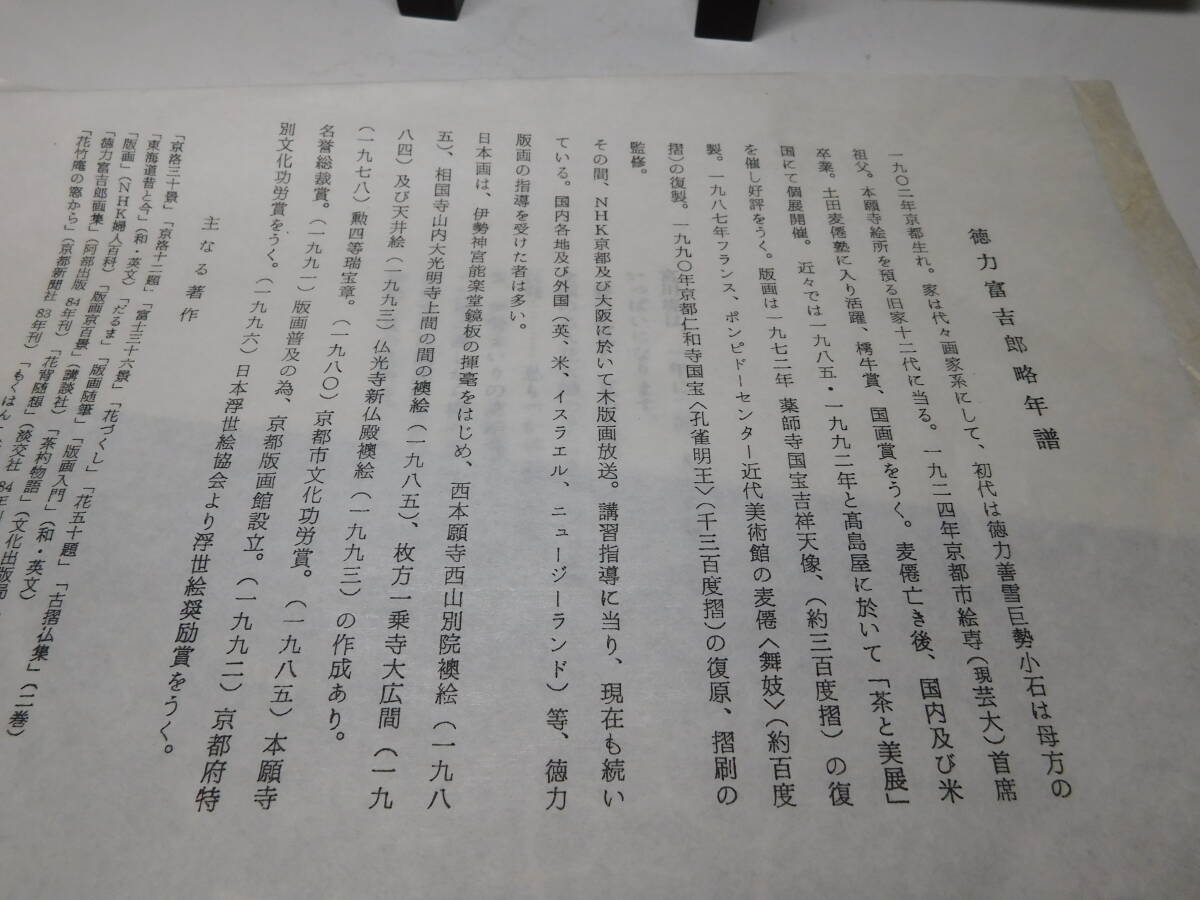 徳力富吉郎略年譜
一九〇二年京都生れ。家は代々画家系にして、初代は徳力善雪巨勢小石は母方の
祖父。本願寺絵所を預る旧家十二代に当る。一九二四年京都市絵専（現芸大）首席
卒業。土田麦僊塾に入り活躍、樗牛賞、国画賞をうく。麦僊亡き後、国内及び米
国にて個展開催。近々では一九八五・一九九二年と髙島屋に於いて「茶と美展」
を催し好評をうく。版画は一九七二年 薬師寺国宝吉祥天像、（約三百度摺）の復
製。一九八七年フランス、ポンピドーセンター近代美術館の麦僊〈舞妓〉（約百度
摺）の復製。一九九〇年京都仁和寺国宝〈孔雀明王〉（千三百度摺）の復原、摺刷の
監修。
その間、NHK京都及び大阪に於いて木版画放送。講習指導に当り、現在も続い
ている。国内各地及び外国（英、米、イスラエル、ニュージーランド）等、徳力
版画の指導を受けた者は多い。
日本画は、伊勢神宮能楽堂鏡板の揮毫をはじめ、西本願寺西山別院襖絵（一九八
五）、相国寺山内大光明寺上間の間の襖絵（一九八五）、枚方一乗寺大広間（一九
八四）及び天井絵（一九九三）仏光寺新仏殿襖絵（一九九三）の作成あり。
（一九七八）勲四等瑞宝章。（一九八〇）京都市文化功労賞。（一九八五）本願寺
名誉総裁賞。（一九九一）版画普及の為、京都版画館設立。（一九九二）京都府特
別文化功労賞をうく。（一九九六）日本浮世絵協会より浮世絵奨励賞をうく。
主なる著作
「京洛三十景」「京洛十二題」「富士三十六景」「花づくし」「花五十題」「古摺仏集」（二巻）
「東海道昔と今」（和・英文）「だるま」「版画随筆」「版画入門」（和・英文）
「版画」（NHK婦人百科）「版画京百景」（講談社）「茶杓物語」（文化出版局
「徳力富吉郎画集」（阿部出版 84年刊）「花宵随想」（淡交社 84年刊
「花竹庵の窓から」（京都新聞社 83年刊）「もくはん